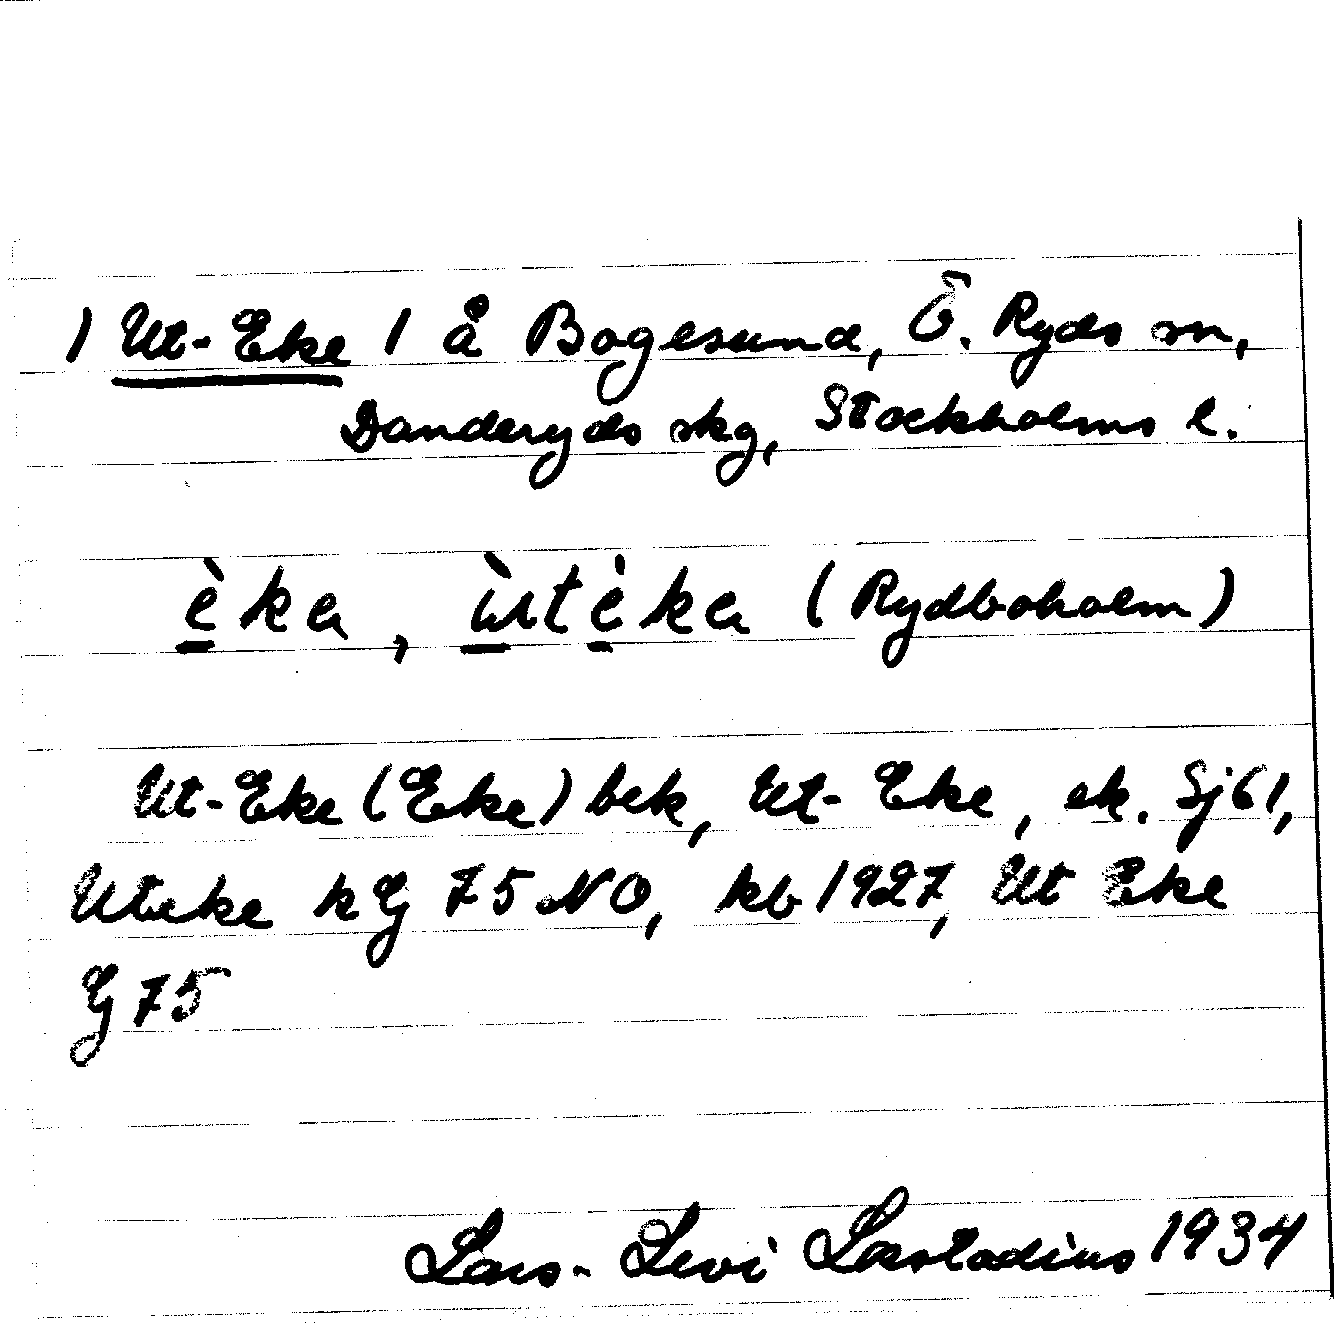 / Ut-Eke / å Bogesund, Ö. Ryds sn,
Danderyds skg, Stockholms l.
èka, ùtėka (Rydboholm)
Ut-Eke (Eke) bek, Ut-Eke, ek. Sj61,
Uteke kG 75 NO, kb 1927, Ut Eke
G 75
Lars-Levi Læstadius 1934